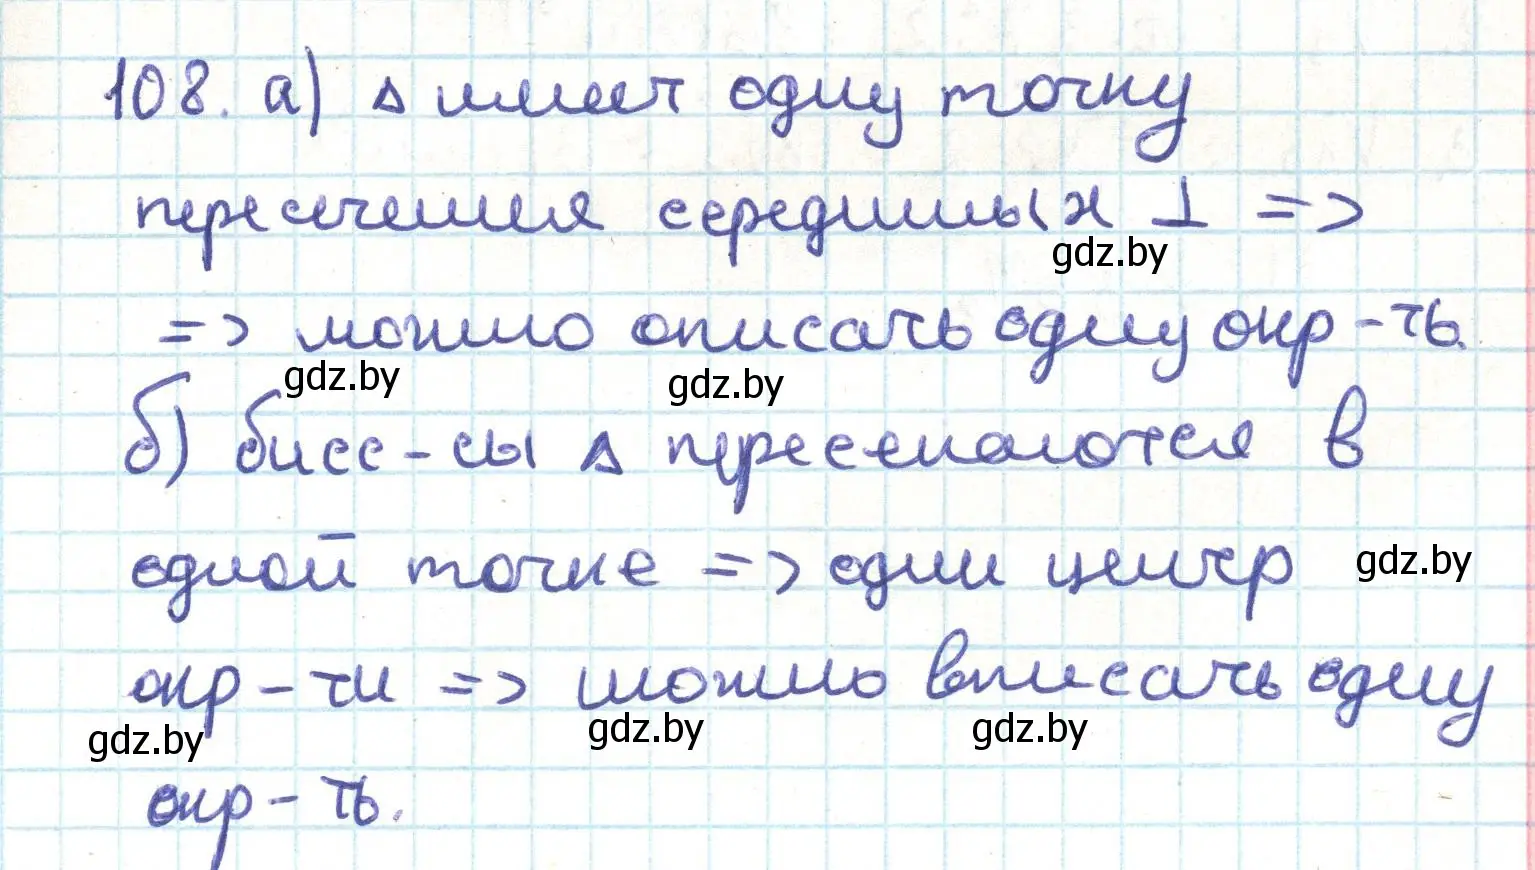 108. а) Δ имеет одну точку
пересечения серединных ⊥ =>
gdz.by
=> можно описать одну окр-ть.
gdz.by gdz.by
б) бисс-сы Δ пересекаются в
одной точке => один центр gdz.by
окр-ти => можно вписать одну
gdz.by gdz.by gdz.by
окр-ть.